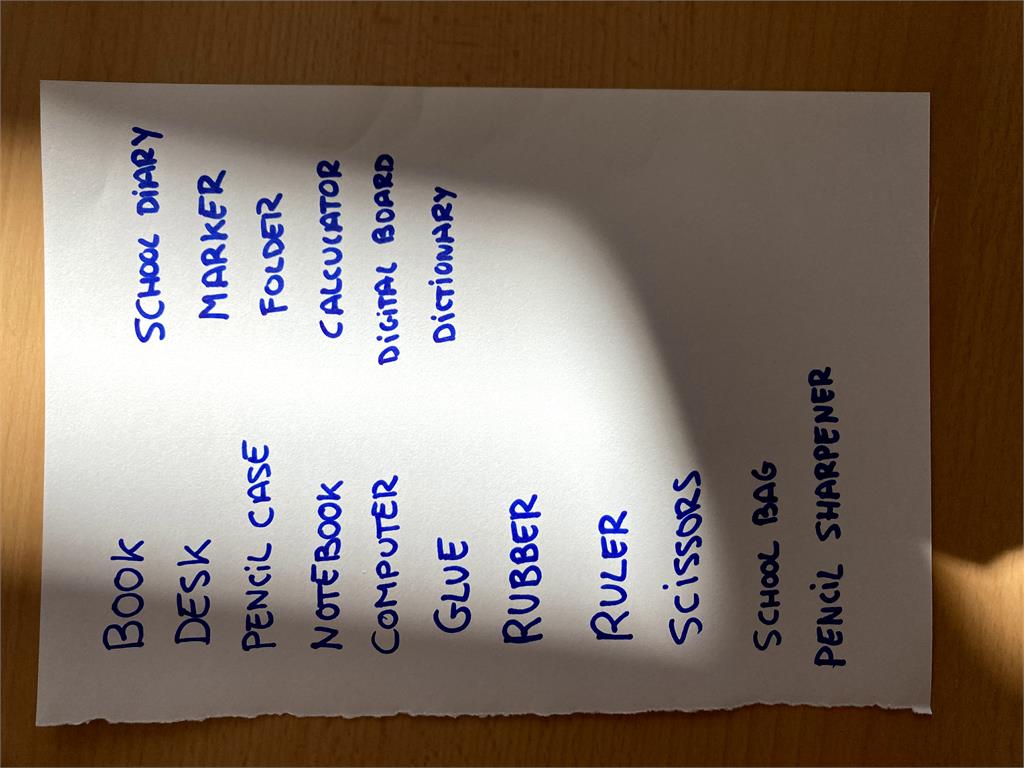 BOOK
DESK
PENCIL CASE
NOTEBOOK
COMPUTER
GLUE
RUBBER
RULER
SCISSORS
SCHOOL BAG
PENCIL SHARPENER
SCHOOL DIARY
MARKER
FOLDER
CALCULATOR
DIGITAL BOARD
DICTIONARY